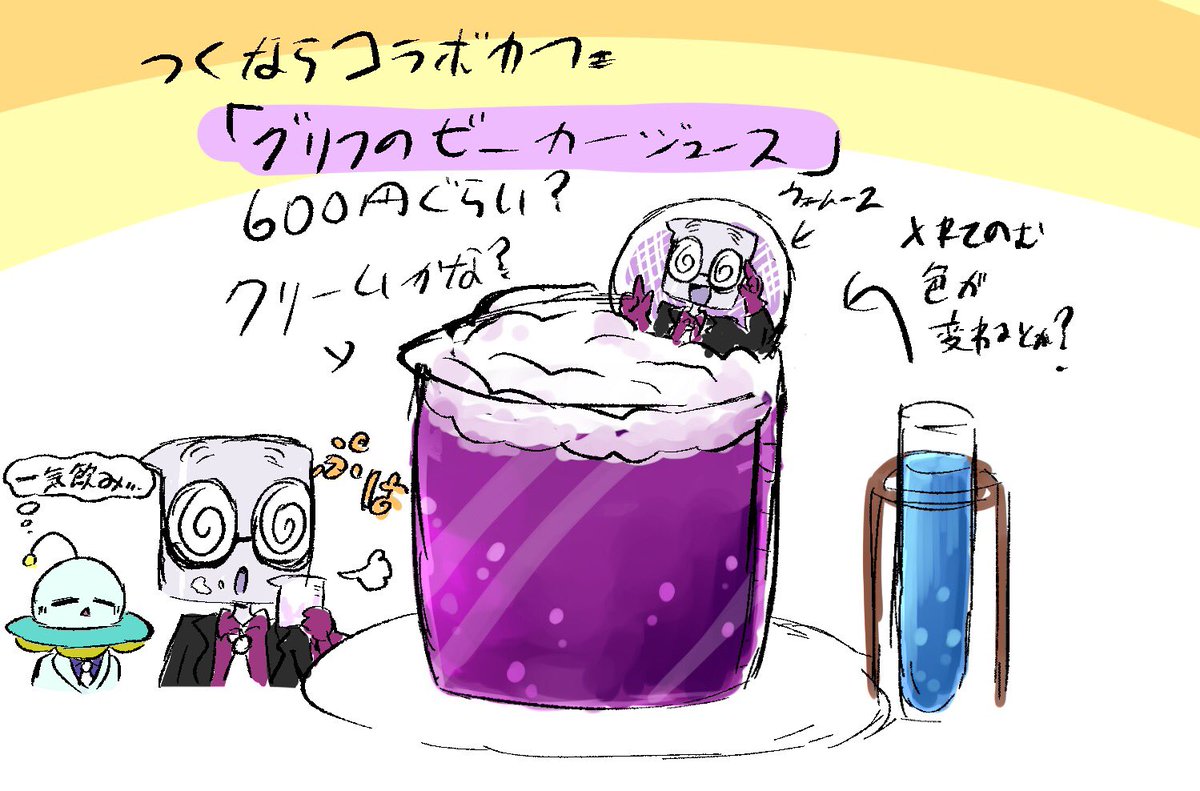 つくならコラボカフェ
「グリフのビーカージュース」
600円ぐらい?
クリームかな?
入れてのむ
色が
変わるとか?
一気飲み…
ぷは